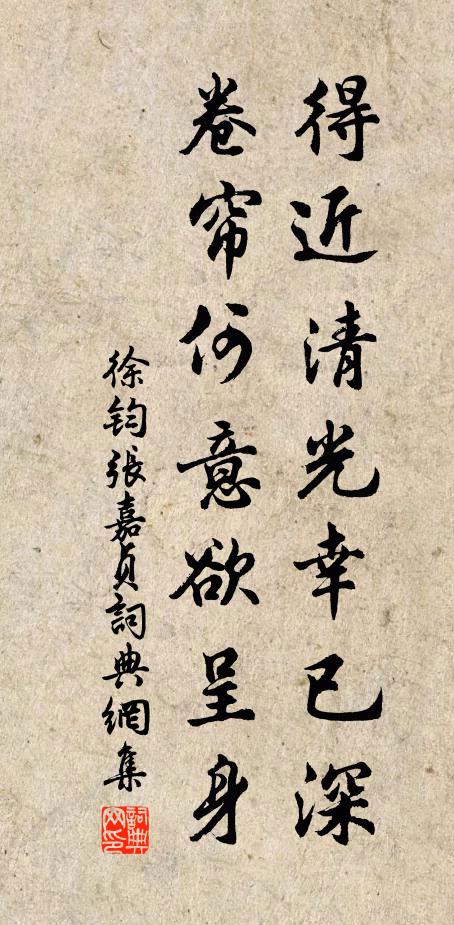 得近清光幸已深
卷帘何意欲呈身
徐钧張嘉貞詞典網集
詞典网印